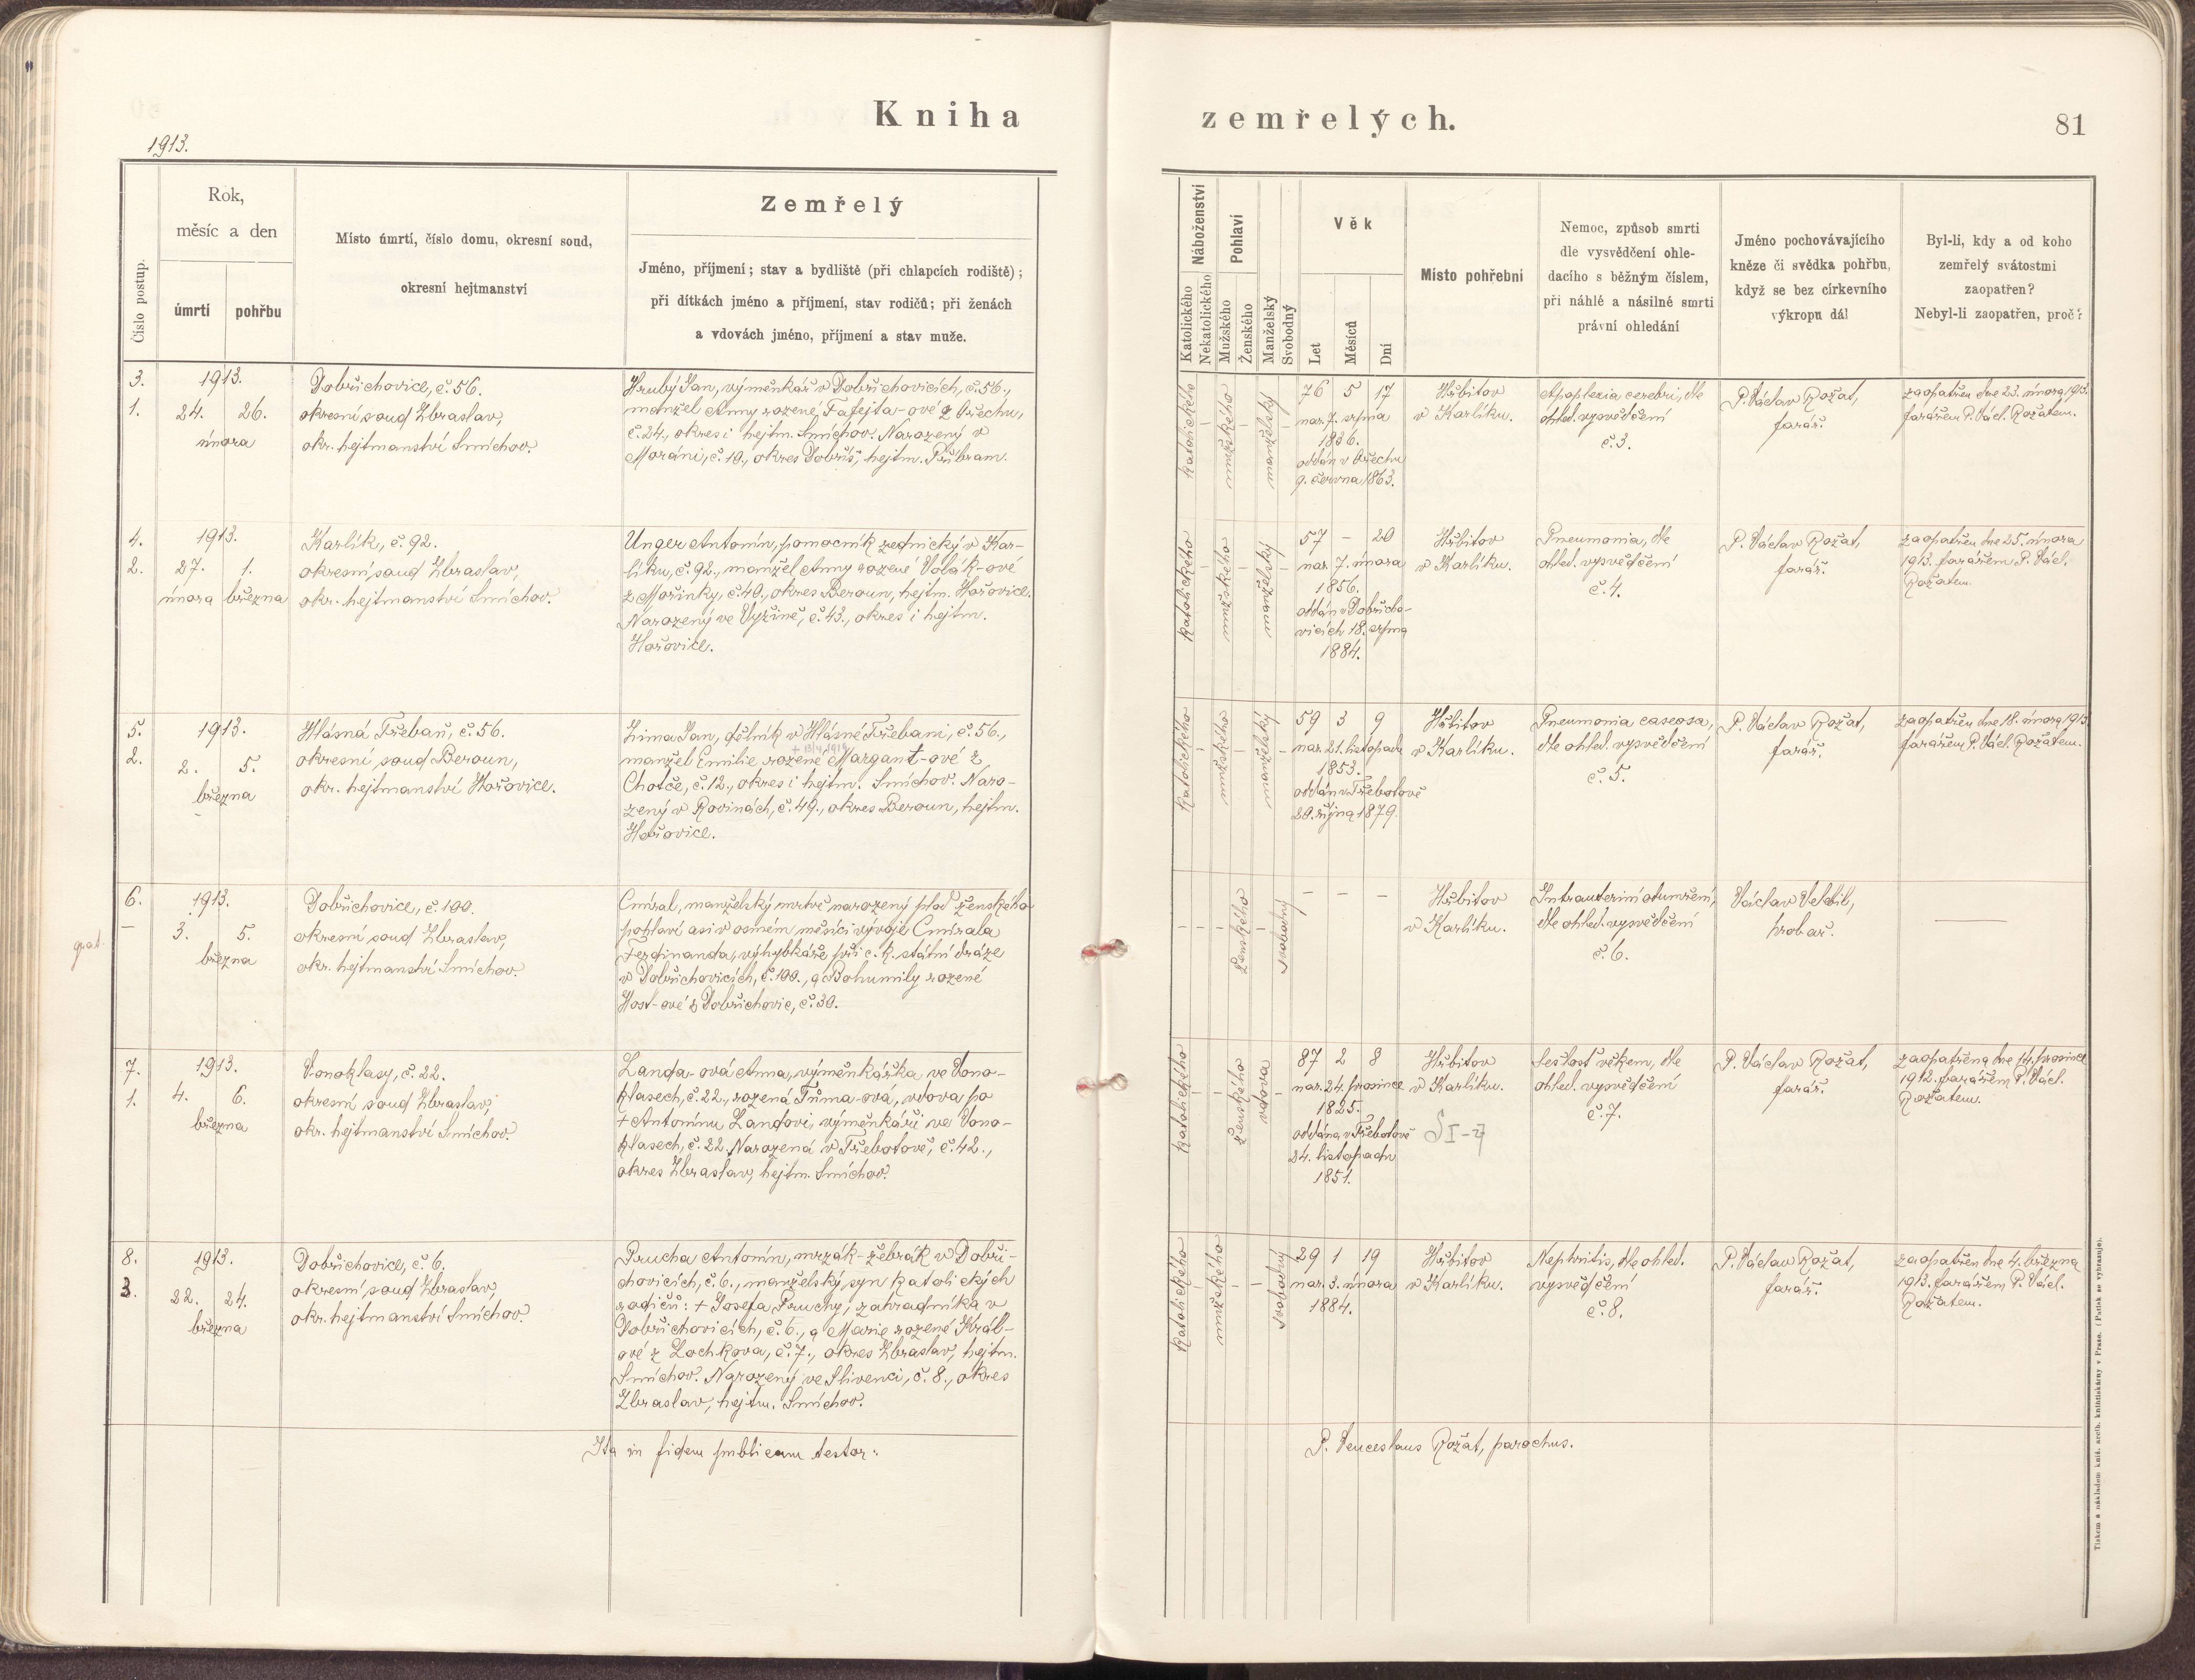 Kniha zemřelých.
81
1913.
Číslo postup.
Rok,
měsíc a den
úmrtí
pohřbu
Místo úmrtí, číslo domu, okresní soud,
okresní hejtmanství
Zemřelý
Jméno, příjmení; stav a bydliště (při chlapcích rodiště);
při dítkách jméno a příjmení, stav rodičů; při ženách
a vdovách jméno, příjmení a stav muže.
Náboženství
Katolického
Nekatolického
Pohlaví
Mužského
Ženského
Manželský
Svobodný
Věk
Let
Měsíců
Dní
Místo pohřební
Nemoc, způsob smrti
dle vysvědčení ohle-
dacího s běžným číslem,
při náhlé a násilné smrti
právní ohledání
Jméno pochovávajícího
kněze či svědka pohřbu,
když se bez církevního
výkropu dál
Byl-li, kdy a od koho
zemřelý svátostmi
zaopatřen?
Nebyl-li zaopatřen, proč?
3.
1.
1913.
24. 26.
února
Dobřichovice, č. 56.
okresní soud Zbraslav,
okr. hejtmanství Smíchov.
Hrubý Jan, výměnkář v Dobřichovicích, č. 56.,
manžel Anny rozené Fafejta-ové z Ořechu,
č. 24., okres i hejtm. Smíchov. Narozený v
Moráni, č. 10., okres Dobříš, hejtm. Příbram.
katolického
mužského
manželský
76 5 17
nar. 7. srpna
1836.
oddán v Ořechu
9. června 1863.
Hřbitov
v Karlíku.
Apoplexia cerebri, dle
ohled. vysvědčení
č. 3.
P. Václav Rožat,
farář.
zaopatřen dne 23. února 1913.
farářem P. Václ. Rožatem.
4.
2.
1913.
27. 1.
února března
Karlík, č. 92.
okresní soud Zbraslav,
okr. hejtmanství Smíchov.
Unger Antonín, pomocník zednický v Kar-
líku, č. 92., manžel Anny rozené Volák-ové
z Mořinky, č. 40., okres Beroun, hejtm. Hořovice.
Narozený ve Vyžině, č. 43., okres i hejtm.
Hořovice.
katolického
mužského
manželský
57 – 20
nar. 7. února
1856.
oddán v Dobřicho-
vicích 18. srpna
1884.
Hřbitov
v Karlíku.
Pneumonia, dle
ohled. vysvědčení
č. 4.
P. Václav Rožat,
farář.
zaopatřen dne 25. února
1913. farářem P. Václ.
Rožatem.
5.
2.
1913.
2. 5.
března
Hlásná Třebaň, č. 56.
okresní soud Beroun,
okr. hejtmanství Hořovice.
Zima Jan, dělník v Hlásné Třebani, č. 56.,
manžel Emilie rozené Margant-ové z
Chotče, č. 12., okres i hejtm. Smíchov. Naro-
zený v Rovinách, č. 49., okres Beroun, hejtm.
Hořovice.
katolického
mužského
manželský
59 3 9
nar. 21. listopadu
1853.
oddán v Třebotově
20. října 1879.
Hřbitov
v Karlíku.
Pneumonia caseosa,
dle ohled. vysvědčení
č. 5.
P. Václav Rožat,
farář.
zaopatřen dne 18. února 1913
farářem P. Václ. Rožatem.
grat.
6.
–
1913.
3. 5.
března
Dobřichovice, č. 100.
okresní soud Zbraslav,
okr. hejtmanství Smíchov.
Cmíral, manželský mrtvě narozený plod ženského
pohlaví asi v osmém měsíci vývoje Cmírala
Ferdinanda, výhybkáře při c. k. státní dráze
v Dobřichovicích, č. 100., a Bohumily rozené
Host-ové z Dobřichovic, č. 30.
ženského
svobodný
– – –
Hřbitov
v Karlíku.
Intrauterinní odumření,
dle ohled. vysvědčení
č. 6.
Václav Vektil,
hrobař.
7.
1.
1913.
4. 6.
března
Vonoklasy, č. 22.
okresní soud Zbraslav,
okr. hejtmanství Smíchov.
Landa-ová Anna, výměnkářka ve Vono-
klasech, č. 22., rozená Tůma-ová, vdova po
+ Antonínu Landovi, výměnkáři ve Vono-
klasech, č. 22. Narozená v Třebotově, č. 42.,
okres Zbraslav, hejtm. Smíchov.
katolického
ženského
vdova
87 2 8
nar. 24. prosince
1825.
oddána v Třebotově
24. listopadu
1851.
Hřbitov
v Karlíku.
Sešlost věkem, dle
ohled. vysvědčení
č. 7.
P. Václav Rožat,
farář.
zaopatřena dne 14. prosince
1912. farářem P. Václ.
Rožatem.
8.
3.
1913.
22. 24.
března
Dobřichovice, č. 6.
okresní soud Zbraslav,
okr. hejtmanství Smíchov.
Prucha Antonín, mrzák-žebrák v Dobři-
chovicích, č. 6., manželský syn katolických
rodičů: + Josefa Pruchy, zahradníka v
Dobřichovicích, č. 6., a Marie rozené Král-
ové z Lochkova, č. 7., okres Zbraslav, hejtm.
Smíchov. Narozený ve Slivenci, č. 8., okres
Zbraslav, hejtm. Smíchov.
katolického
mužského
svobodný
29 1 19
nar. 3. února
1884.
Hřbitov
v Karlíku.
Nephritis, dle ohled.
vysvědčení
č. 8.
P. Václav Rožat,
farář.
zaopatřen dne 4. března
1913. farářem P. Václ.
Rožatem.
Ita in fidem publicam testor:
P. Venceslaus Rožat, parochus.
Tiskem a nákladem kníž. arcib. knihtiskárny v Praze. (Patisk se vyhrazuje).